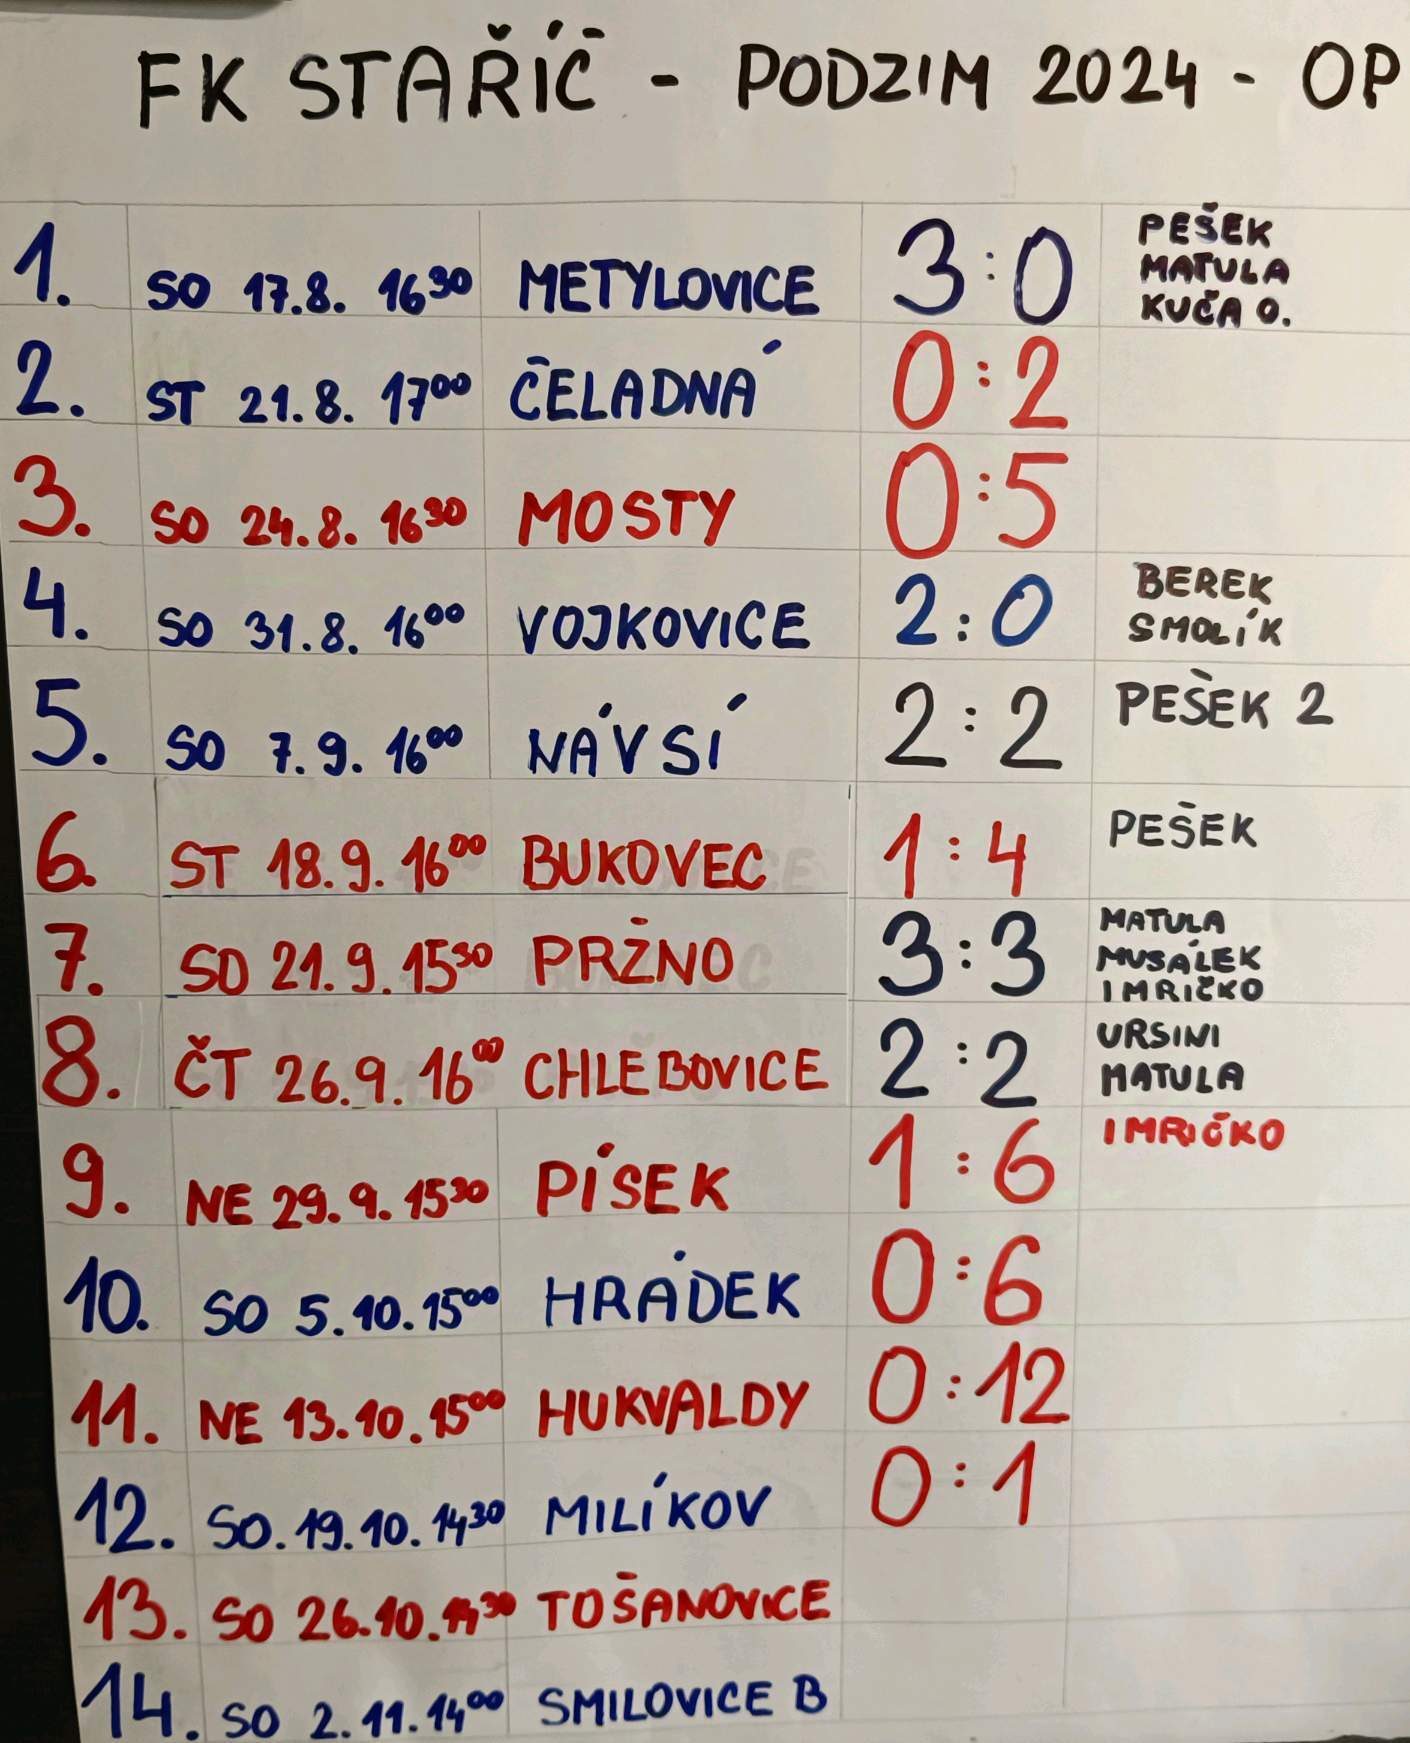 FK STAŘÍČ - PODZIM 2024 - OP
1. SO 17.8. 16³⁰ METYLOVICE 3:0 PEŠEK
MATULA
KUČA O.
2. ST 21.8. 17⁰⁰ ČELADNÁ 0:2
3. SO 24.8. 16³⁰ MOSTY 0:5
4. SO 31.8. 16⁰⁰ VOJKOVICE 2:0 BEREK
SMOLÍK
5. SO 7.9. 16⁰⁰ NÁVSÍ 2:2 PEŠEK 2
6. ST 18.9. 16⁰⁰ BUKOVEC 1:4 PEŠEK
7. SO 21.9. 15³⁰ PRŽNO 3:3 MATULA
MUSÁLEK
IMRIČKO
8. ČT 26.9. 16⁰⁰ CHLEBOVICE 2:2 URSINI
MATULA
9. NE 29.9. 15³⁰ PÍSEK 1:6 IMRIČKO
10. SO 5.10. 15⁰⁰ HRÁDEK 0:6
11. NE 13.10. 15⁰⁰ HUKVALDY 0:12
12. SO. 19.10. 14³⁰ MILÍKOV 0:1
13. SO 26.10. 14³⁰ TOŠANOVICE
14. SO 2.11. 14⁰⁰ SMILOVICE B